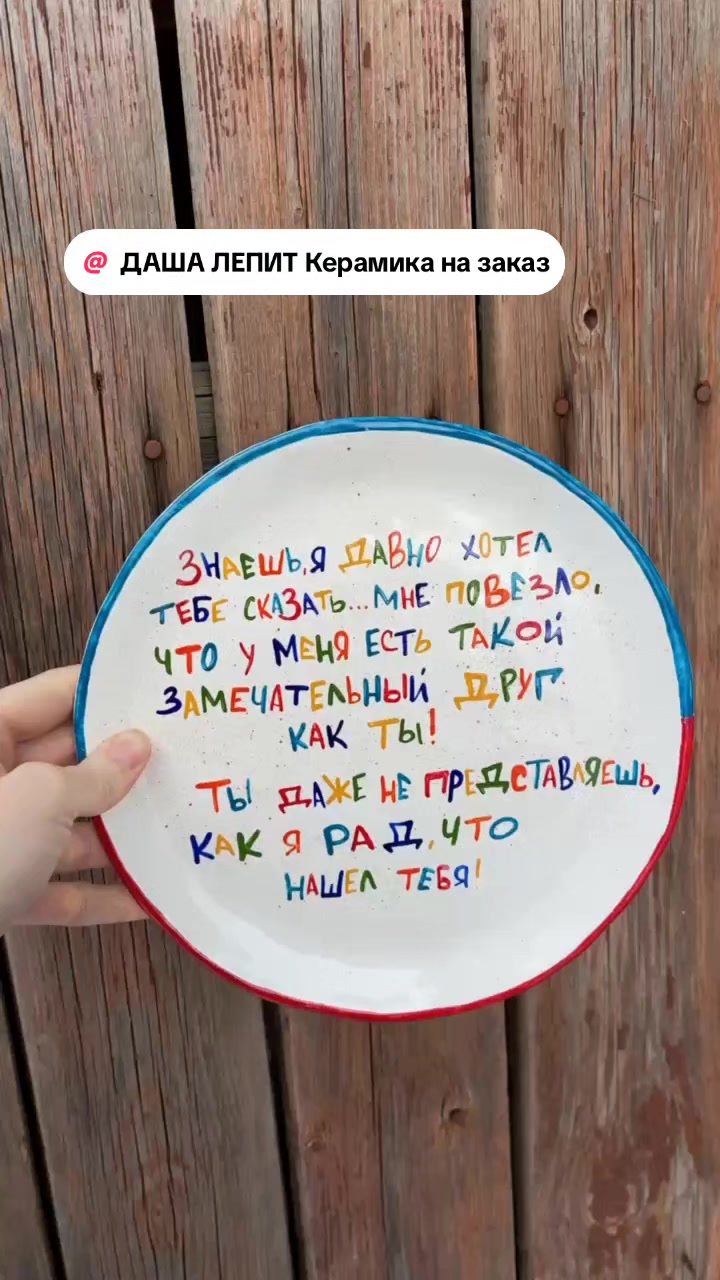 @ ДАША ЛЕПИТ Керамика на заказ
ЗНАЕШЬ,Я ДАВНО ХОТЕЛ
ТЕБЕ СКАЗАТЬ...МНЕ ПОВЕЗЛО,
ЧТО У МЕНЯ ЕСТЬ ТАКОЙ
ЗАМЕЧАТЕЛЬНЫЙ ДРУГ
КАК ТЫ!
ТЫ ДАЖЕ НЕ ПРЕДСТАВЛЯЕШЬ,
КАК Я РАД, ЧТО
НАШЕЛ ТЕБЯ!